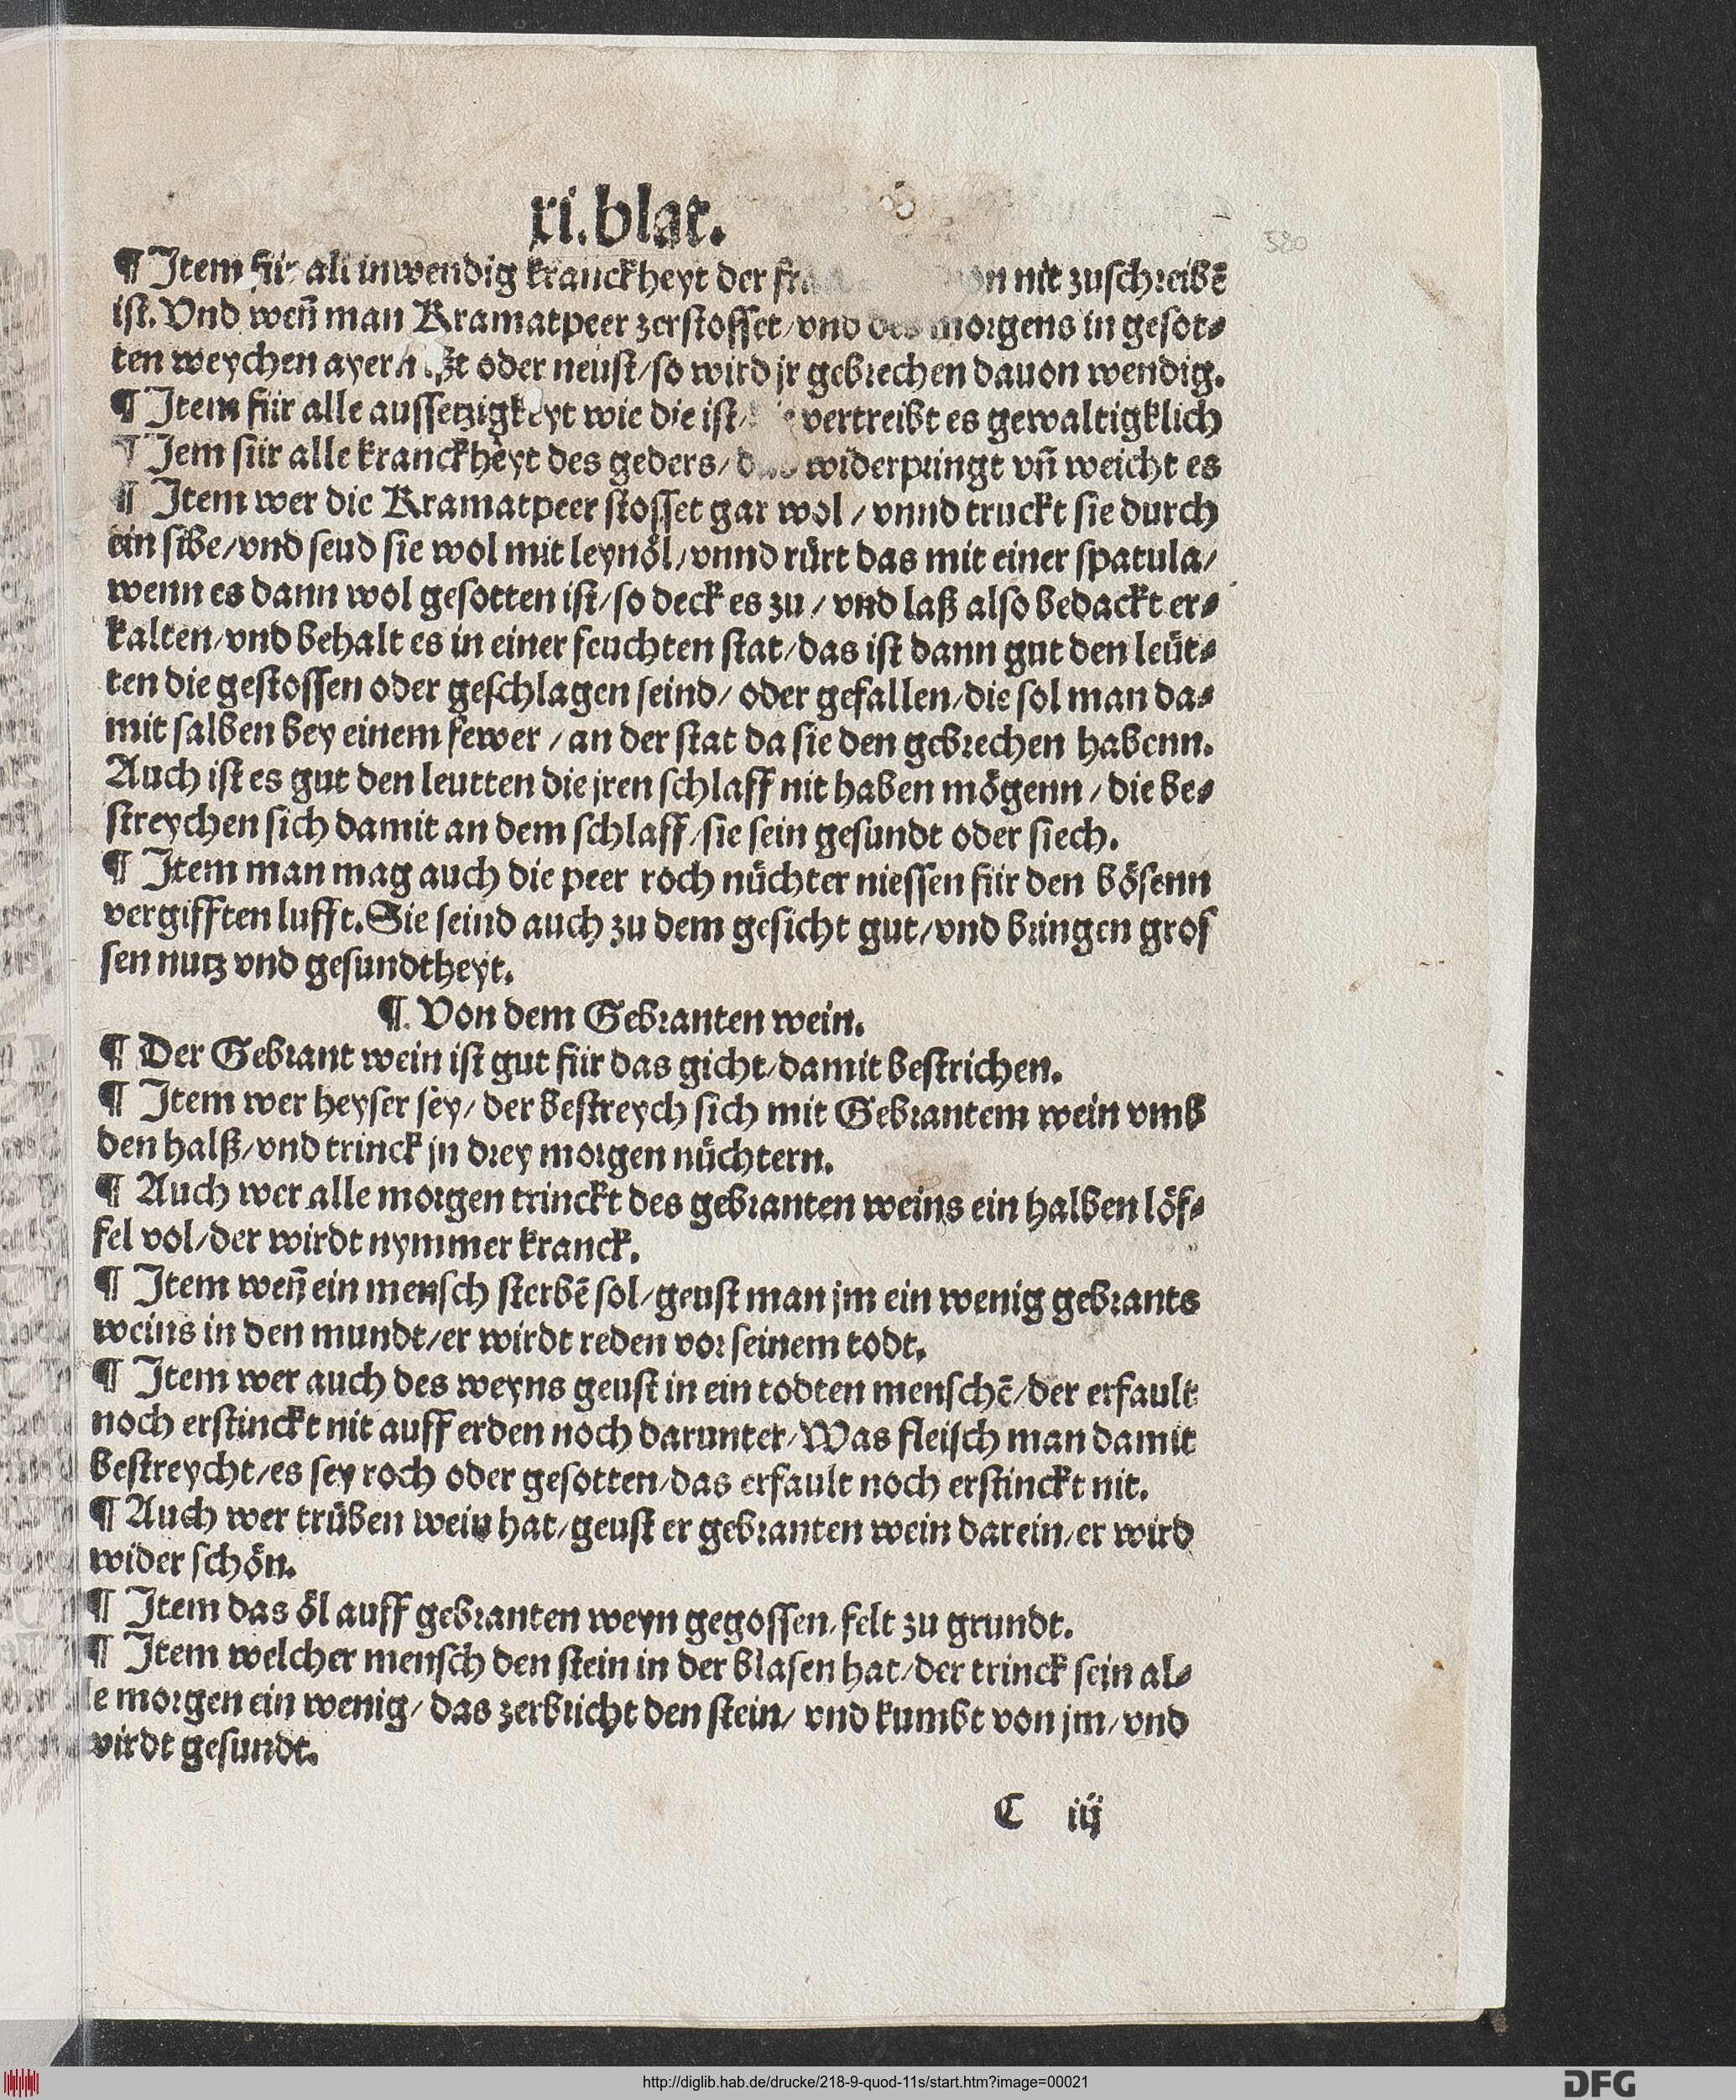 xi.blat.
580
¶ Item für all inwendig kranckheyt der nit zuschreibē
ist. Vnd weñ man Kramatpeer zerstosset/vnd des morgens in gesot⸗
ten weychen ayer oder neust/so wird jr gebrechen dauon wendig.
¶ Item für alle aussetzigkeyt wie die ist/ vertreibt es gewaltigklich
¶ Jem für alle kranckheyt des geders/ widerpringt vñ weicht es
¶ Item wer die Kramatpeer stosset gar wol / vnnd truckt sie durch
ein sibe/vnd seud sie wol mit leynöl/vnnd rürt das mit einer spatula/
wenn es dann wol gesotten ist/so deck es zu / vnd laß also bedackt er⸗
kalten/vnd behalt es in einer feuchten stat/das ist dann gut den leüt⸗
ten die gestossen oder geschlagen seind/ oder gefallen/die sol man da⸗
mit salben bey einem fewer / an der stat da sie den gebrechen habenn.
Auch ist es gut den leutten die jren schlaff nit haben mögenn / die be⸗
streychen sich damit an dem schlaff/sie sein gesundt oder siech.
¶ Item man mag auch die peer roch nüchter niessen für den bösenn
vergifften lufft. Sie seind auch zu dem gesicht gut/vnd bringen gros
sen nutz vnd gesundtheyt.
¶ Von dem Gebranten wein.
¶ Der Gebrant wein ist gut für das gicht/damit bestrichen.
¶ Item wer heyser sey/ der bestreych sich mit Gebrantem wein vmb
den halß/vnd trinck jn drey morgen nüchtern.
¶ Auch wer alle morgen trinckt des gebranten weins ein halben löf⸗
fel vol/der wirdt nymmer kranck.
¶ Item weñ ein mensch sterbē sol/geust man jm ein wenig gebrants
weins in den mundt/er wirdt reden vor seinem todt.
¶ Item wer auch des weyns geust in ein todten menschē/der erfault
noch erstinckt nit auff erden noch darunter/Was fleisch man damit
bestreycht/es sey roch oder gesotten/das erfault noch erstinckt nit.
¶ Auch wer trüben wein hat/geust er gebranten wein darein/er wird
wider schön.
¶ Item das öl auff gebranten weyn gegossen/felt zu grundt.
¶ Item welcher mensch den stein in der blasen hat/der trinck sein al⸗
le morgen ein wenig/ das zerbricht den stein/ vnd kumbt von jm/vnd
wirdt gesundt.
C iij
http://diglib.hab.de/drucke/218-9-quod-11s/start.htm?image=00021
DFG